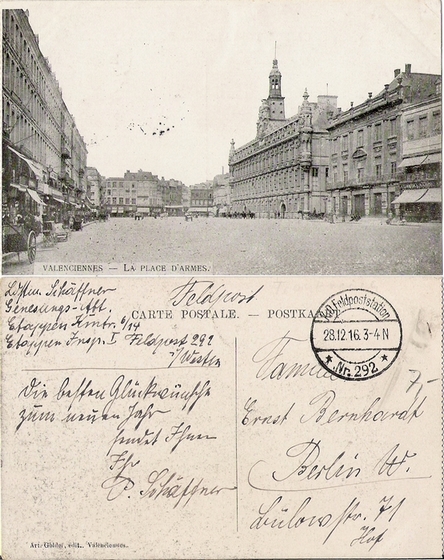 VALENCIENNES — LA PLACE D'ARMES.
Schäffner
Genesungs-Abt.
Etappen Kmtr. 6/14
Etappen Insp. I Feldpost 292
Feldpost
CARTE POSTALE. — POSTKA
K.D. Feldpoststation
28.12.16. 3-4 N
★ Nr. 292 ★
Die besten Glückwünsche
zum neuen Jahr
sendet Ihnen
Ihr
P. Schäffner
7,-
Ernst Bernhardt
Berlin W.
Bülowstr. 71
Hof
Valenciennes.